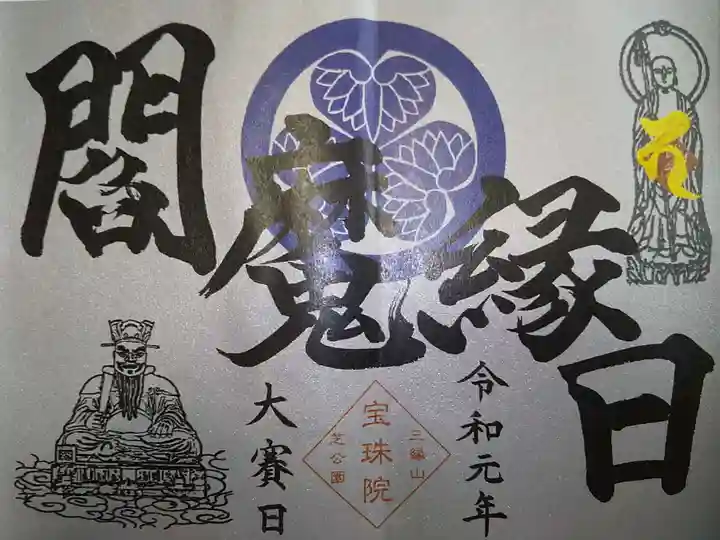 閻魔縁日
令和元年
三縁山
宝珠院
芝公園
大賽日